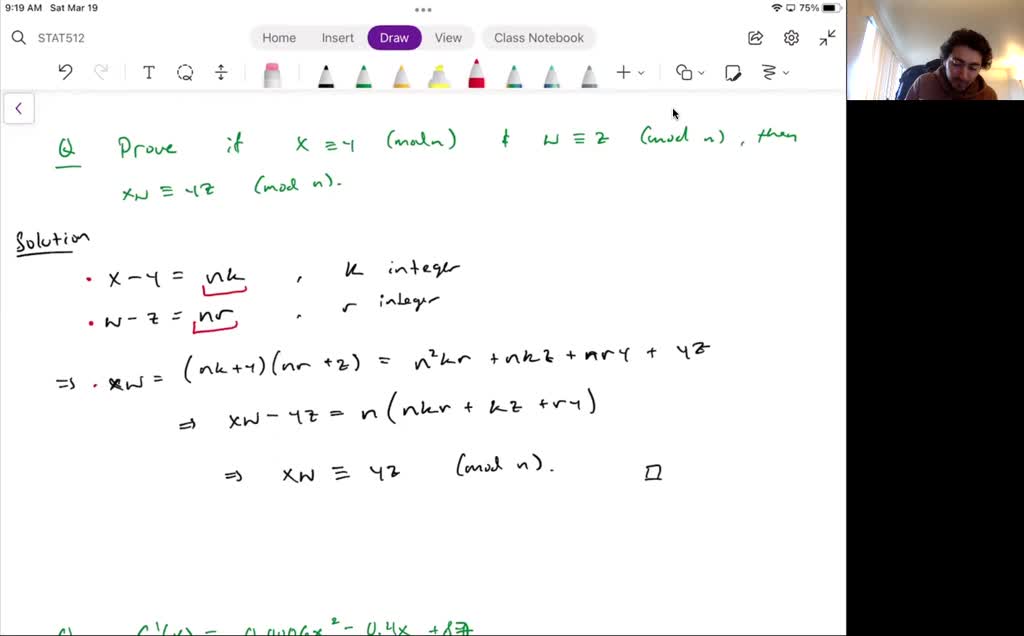 9:19 AM Sat Mar 19
75%
STAT512
Home Insert Draw View Class Notebook
Q Prove if x ≡ y (mod n) & w ≡ z (mod n), then
xw ≡ yz (mod n).
Solution
• x - y = nk , k integer
• w - z = nr , r integer
⇒ • xw = (nk+y)(nr+z) = n²kr + nkz + nry + yz
⇒ xw - yz = n(nkr + kz + ry)
⇒ xw ≡ yz (mod n). □